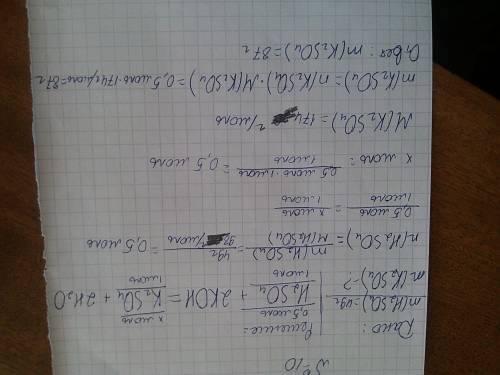 №10
Дано:
m(H₂SO₄)=49г
m(K₂SO₄)-?
Решение:
0,5 моль x моль
H₂SO₄ + 2KOH = K₂SO₄ + 2H₂O
1моль 1моль
n(H₂SO₄) = m(H₂SO₄) / M(H₂SO₄) = 49г / 98 г/моль = 0,5 моль
0,5 моль / 1моль = x моль / 1 моль
x моль = 0,5 моль · 1моль / 1 моль = 0,5 моль
M(K₂SO₄) = 174 г/моль
m(K₂SO₄) = n(K₂SO₄) · M(K₂SO₄) = 0,5 моль · 174г/моль = 87г
Ответ: m(K₂SO₄) = 87г